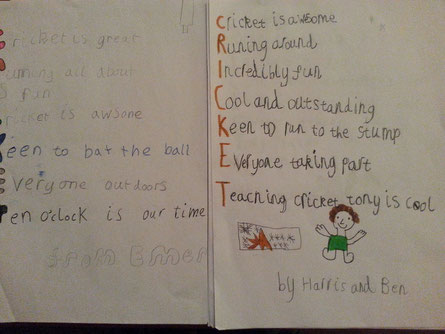 Cricket is great
Running all about
is fun
Cricket is awsone
Keen to bat the ball
Everyone outdoors
Ten o'clock is our time
from Emer
Cricket is awsome
Runing around
Incredibly fun
Cool and outstanding
Keen to run to the stump
Everyone taking part
Teaching cricket tony is cool
by Harris and Ben